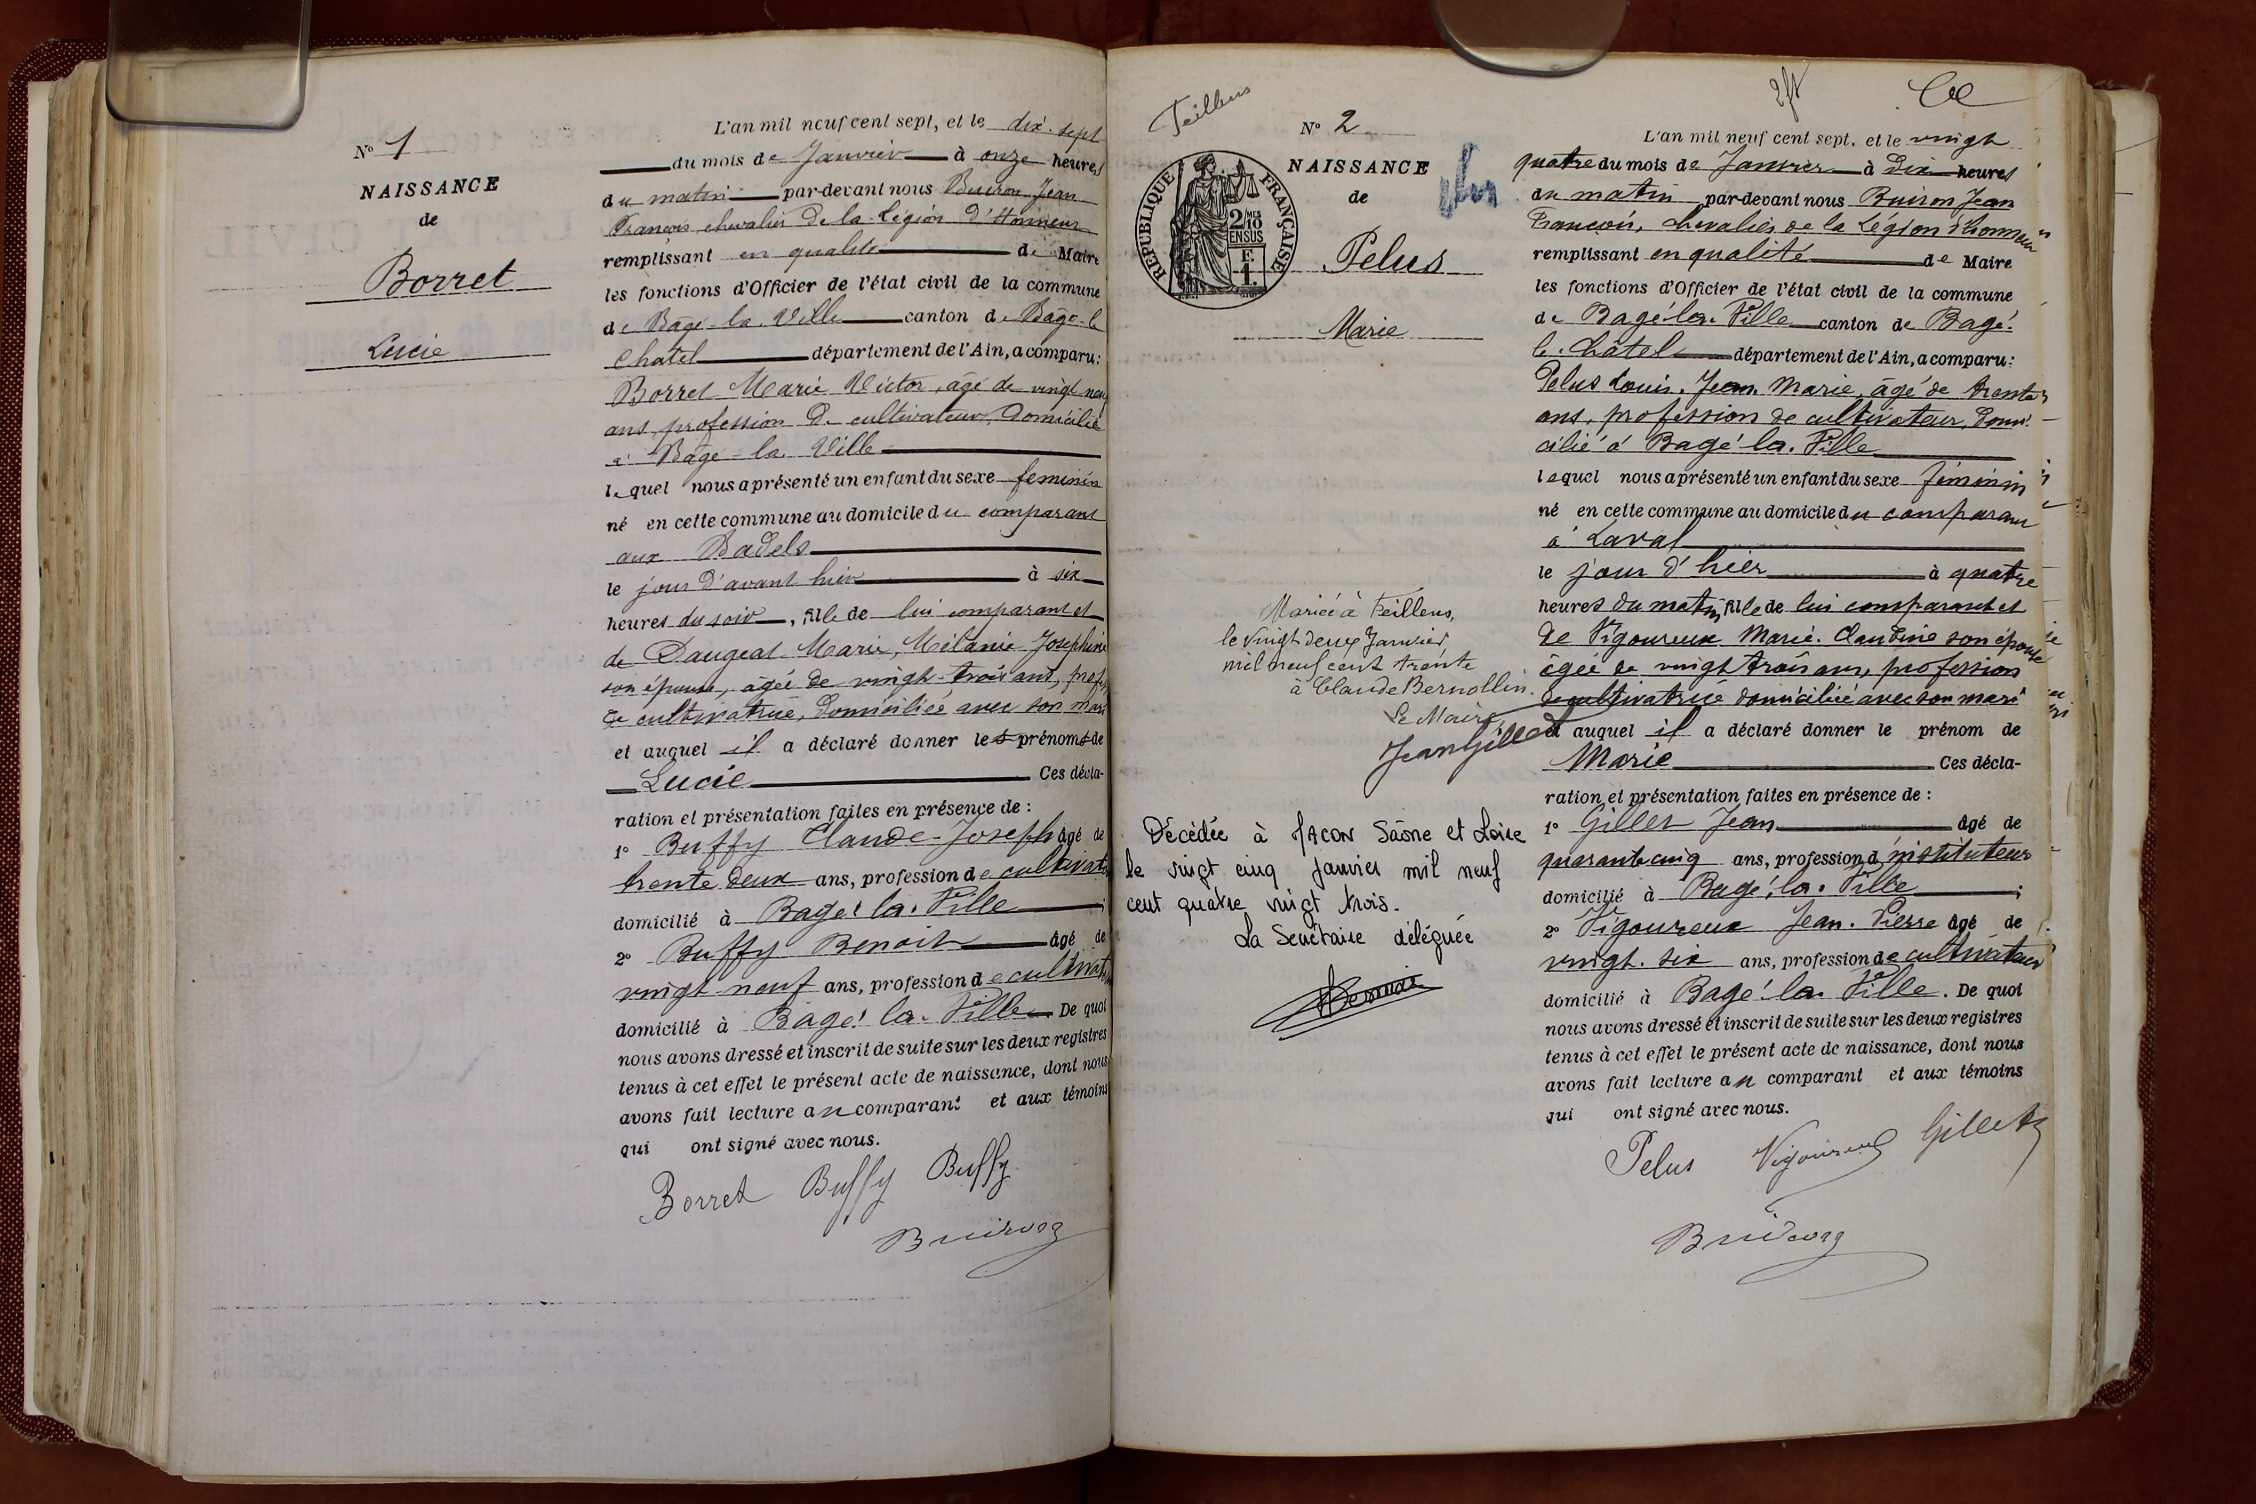 N° 1
NAISSANCE
de
Borret
Lucie
L'an mil neuf cent sept, et le dix-sept
du mois de Janvier à onze heures
du matin par-devant nous Buiron Jean
François chevalier de la Légion d'Honneur
remplissant en qualité de Maire
les fonctions d'Officier de l'état civil de la commune
de Bâgé-la-Ville canton de Bâgé-le
Chatel département de l'Ain, a comparu:
Borret Marie Victor, âgé de vingt neuf
ans, profession de cultivateur, domicilié
à Bâgé-la-Ville
lequel nous a présenté un enfant du sexe feminin
né en cette commune au domicile du comparant
aux Badels
le jour d'avant hier à six
heures du soir, fille de lui comparant et
de Daugeat Marie, Mélanie Josephine
son épouse, âgée de vingt-trois ans, profes
de cultivatrice, domiciliée avec son mari
et auquel il a déclaré donner les prénoms de
Lucie Ces décla-
ration et présentation faites en présence de :
1° Buffy Claude-Joseph âgé de
trente deux ans, profession de cultivat
domicilié à Bagé-la-Ville ;
2° Buffy Benoit âgé de
vingt neuf ans, profession de cultivat
domicilié à Bagé-la-Ville De quoi
nous avons dressé et inscrit de suite sur les deux registres
tenus à cet effet le présent acte de naissance, dont nous
avons fait lecture au comparant et aux témoins
qui ont signé avec nous.
Borret Buffy Buffy
Buiron
Feillens
N° 2
NAISSANCE
de
Pelus
Marie
RÉPUBLIQUE FRANÇAISE
2 MES 10
EN SUS
F.
1.
Mariée à Feillens,
le vingt deux Janvier
mil neuf cent trente
à Claude Bernollin.
Le Maire,
Jean Gillet
Décédée à MACON Saône et Loire
le vingt cinq janvier mil neuf
cent quatre vingt trois.
La Secrétaire déléguée
L'an mil neuf cent sept, et le vingt
quatre du mois de Janvier à dix heures
du matin par-devant nous Buiron Jean
François, chevalier de la Légion d'honneur
remplissant en qualité de Maire
les fonctions d'Officier de l'état civil de la commune
de Bagé-la-Ville canton de Bagé-
le-Châtel département de l'Ain, a comparu:
Pelus Louis, Jean, Marie, âgé de trente
ans, profession de cultivateur, domi-
cilié à Bagé-la-Ville
lequel nous a présenté un enfant du sexe féminin
né en cette commune au domicile du comparant
à Laval
le jour d'hier à quatre
heures du matin, fille de lui comparant et
de Vigoureux Marie-Claudine son épouse
âgée de vingt trois ans, profession
de cultivatrice domiciliée avec son mari
et auquel il a déclaré donner le prénom de
Marie Ces décla-
ration et présentation faites en présence de :
1° Gillet Jean âgé de
quarante cinq ans, profession d'instituteur
domicilié à Bagé-la-Ville ;
2° Vigoureux Jean-Pierre âgé de
vingt-six ans, profession de cultivateur
domicilié à Bagé-la-Ville. De quoi
nous avons dressé et inscrit de suite sur les deux registres
tenus à cet effet le présent acte de naissance, dont nous
avons fait lecture au comparant et aux témoins
qui ont signé avec nous.
Pelus Vigoureux Gillet
Buiron